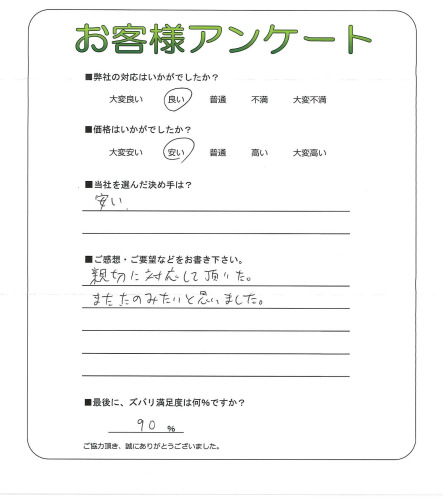 お客様アンケート
■弊社の対応はいかがでしたか？
大変良い 良い 普通 不満 大変不満
■価格はいかがでしたか？
大変安い 安い 普通 高い 大変高い
■当社を選んだ決め手は？
安い、
■ご感想・ご要望などをお書き下さい。
親切に対応して頂いた。
またたのみたいと思いました。
■最後に、ズバリ満足度は何％ですか？
90 ％
ご協力頂き、誠にありがとうございました。